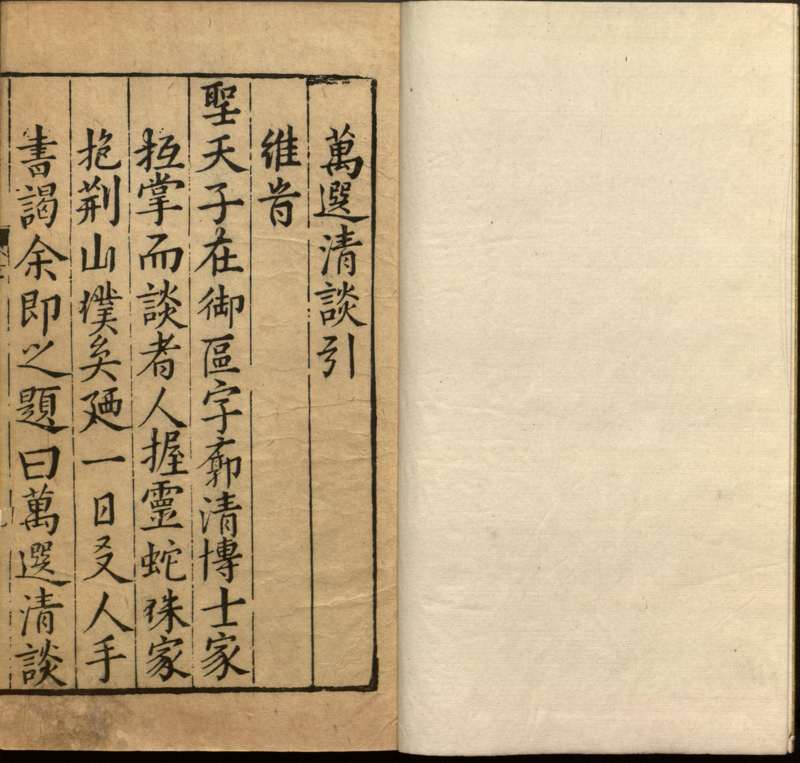 萬選清談引
維旹
聖天子在御區字廓清博士家
抵掌而談者人握靈蛇珠家
抱荆山璞矣廼一日友人手
書謁余即之題曰萬選清談